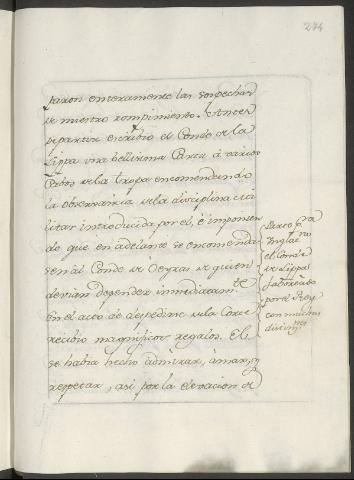 274
paron enteramente las sospechas
de nuestro rompimiento. Antes
de partir escribio el Conde de la
Lippa una bellissima Carta á varios
Cabos de la tropa encomendando
la observancia de la disciplina mi
litar introducida por el, é imponien
do que en adelante se encomenda
sen al Conde de Oeyras de quien
devian depender inmediatamte
En el acto de despedirse de la Corte
recibio magnificos regalos. El
se habia hecho admirar, amar, y
respetar, asi por la elevacion de
Parte pa
Ynglatno
el Conde
de Lippa
faborecido
por el Rey
con muchas
distinnes